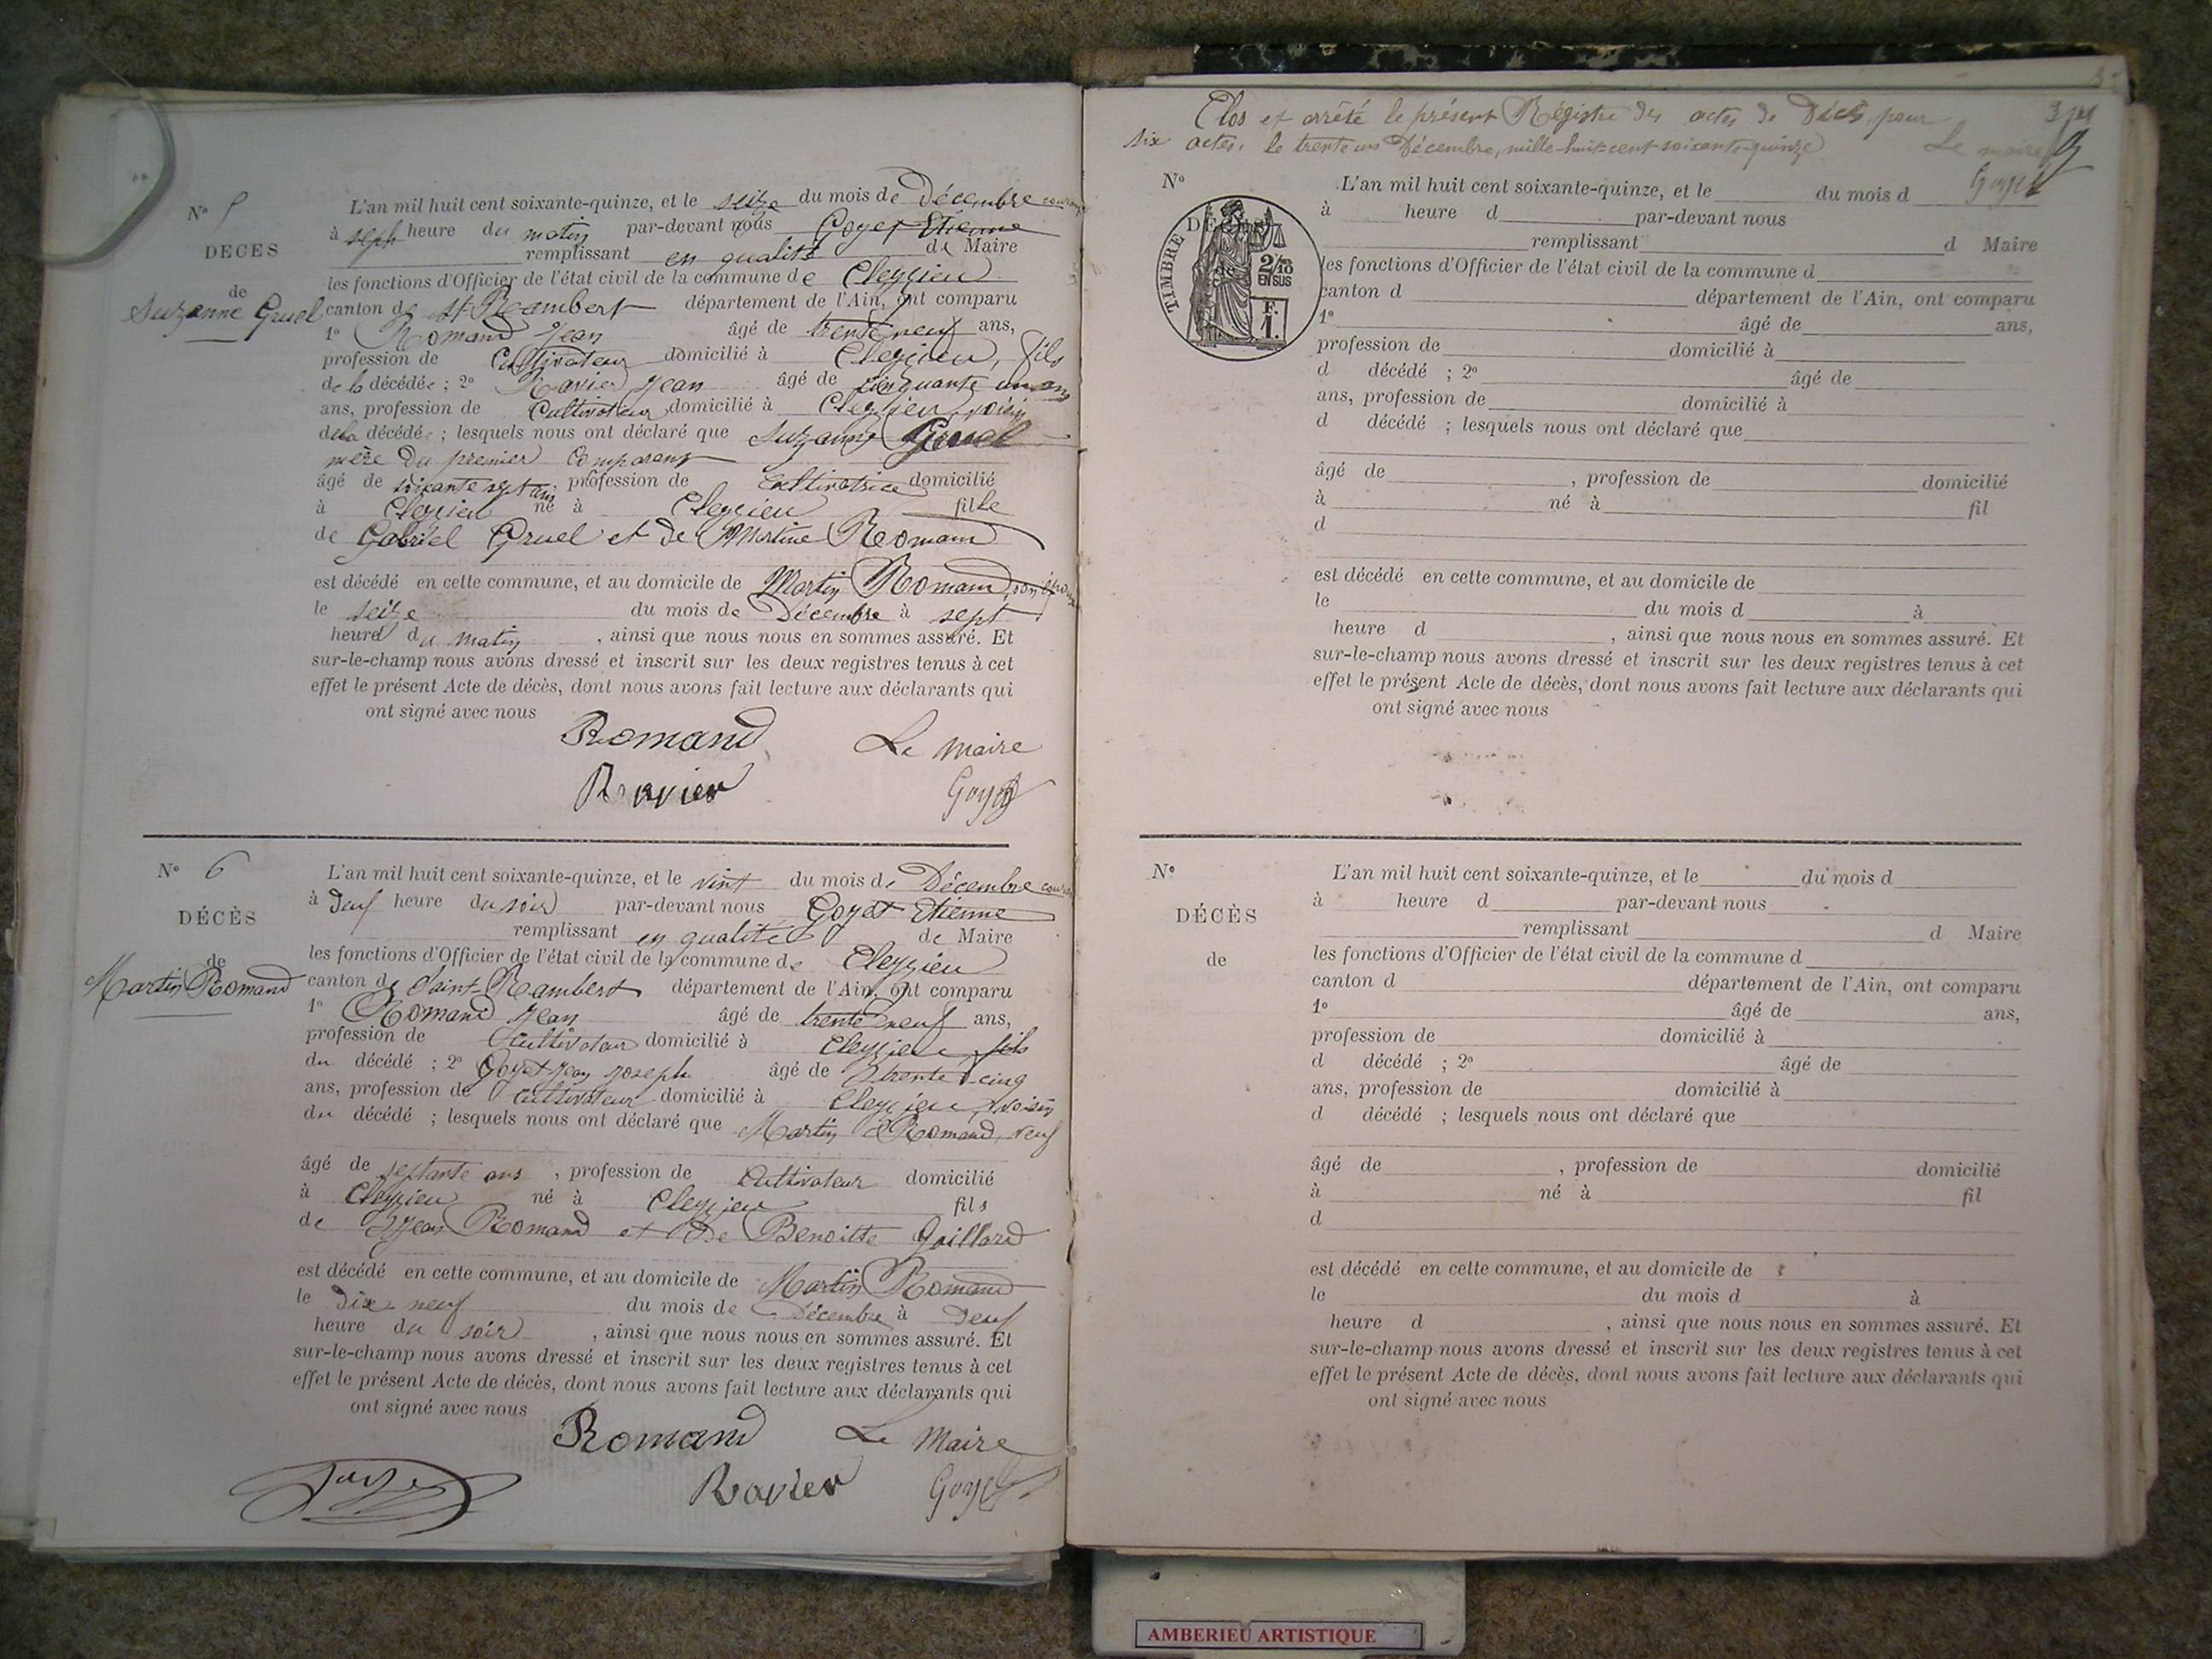 N° 5
DECES
de
Suzanne Gruel
L'an mil huit cent soixante-quinze, et le seize du mois de Décembre courant
à sept heure du matin par-devant nous Goyet Etienne
remplissant en qualité de Maire
les fonctions d'Officier de l'état civil de la commune de Cleyzieu
canton de St Rambert département de l'Ain, ont comparu
1° Romand Jean âgé de trente neuf ans,
profession de Cultivateur domicilié à Cleyzieu, fils
de la décédée ; 2° Ravier Jean âgé de cinquante un ans
ans, profession de Cultivateur domicilié à Cleyzieu, voisin
de la décédée ; lesquels nous ont déclaré que Suzanne Gruel
mère du premier Comparant
âgé de soixante sept ans, profession de Cultivatrice domicilié
à Cleyzieu né à Cleyzieu fille
de Gabriel Gruel et de Martine Romand
est décédé en cette commune, et au domicile de Martin Romand, son époux
le seize du mois de Décembre à sept
heure du matin, ainsi que nous nous en sommes assuré. Et
sur-le-champ nous avons dressé et inscrit sur les deux registres tenus à cet
effet le présent Acte de décès, dont nous avons fait lecture aux déclarants qui
ont signé avec nous
Romand Le Maire
Ravier Goyet
N° 6
DÉCÈS
de
Martin Romand
L'an mil huit cent soixante-quinze, et le vint du mois de Décembre courant
à deuf heure du soir par-devant nous Goyet Etienne
remplissant en qualité de Maire
les fonctions d'Officier de l'état civil de la commune de Cleyzieu
canton de Saint-Rambert département de l'Ain, ont comparu
1° Romand Jean âgé de trente neuf ans,
profession de Cultivateur domicilié à Cleyzieu fils
du décédé ; 2° Goyet Jean Joseph âgé de trente cinq
ans, profession de Cultivateur domicilié à Cleyzieu, voisin
du décédé ; lesquels nous ont déclaré que Martin Romand, veuf
âgé de septante ans, profession de Cultivateur domicilié
à Cleyzieu né à Cleyzieu fils
de Jean Romand et de Benoitte Gaillard
est décédé en cette commune, et au domicile de Martin Romand
le dix neuf du mois de Décembre à deuf
heure du soir, ainsi que nous nous en sommes assuré. Et
sur-le-champ nous avons dressé et inscrit sur les deux registres tenus à cet
effet le présent Acte de décès, dont nous avons fait lecture aux déclarants qui
ont signé avec nous
Romand Le Maire
Ravier Goyet
Clos et arrêté le présent Régistre des actes de Décès, pour
six actes, le trente un Décembre, mille-huit-cent soixante-quinze
Le maire
Goyet
N°
DÉCÈS
de
TIMBRE
2/10
EN SUS
F.
1.
L'an mil huit cent soixante-quinze, et le du mois d
à heure d par-devant nous
remplissant d Maire
les fonctions d'Officier de l'état civil de la commune d
canton d département de l'Ain, ont comparu
1° âgé de ans,
profession de domicilié à
d décédé ; 2° âgé de
ans, profession de domicilié à
d décédé ; lesquels nous ont déclaré que
âgé de , profession de domicilié
à né à fil
d
est décédé en cette commune, et au domicile de
le du mois d à
heure d , ainsi que nous nous en sommes assuré. Et
sur-le-champ nous avons dressé et inscrit sur les deux registres tenus à cet
effet le présent Acte de décès, dont nous avons fait lecture aux déclarants qui
ont signé avec nous
N°
DÉCÈS
de
L'an mil huit cent soixante-quinze, et le du mois d
à heure d par-devant nous
remplissant d Maire
les fonctions d'Officier de l'état civil de la commune d
canton d département de l'Ain, ont comparu
1° âgé de ans,
profession de domicilié à
d décédé ; 2° âgé de
ans, profession de domicilié à
d décédé ; lesquels nous ont déclaré que
âgé de , profession de domicilié
à né à fil
d
est décédé en cette commune, et au domicile de
le du mois d à
heure d , ainsi que nous nous en sommes assuré. Et
sur-le-champ nous avons dressé et inscrit sur les deux registres tenus à cet
effet le présent Acte de décès, dont nous avons fait lecture aux déclarants qui
ont signé avec nous
AMBERIEU ARTISTIQUE